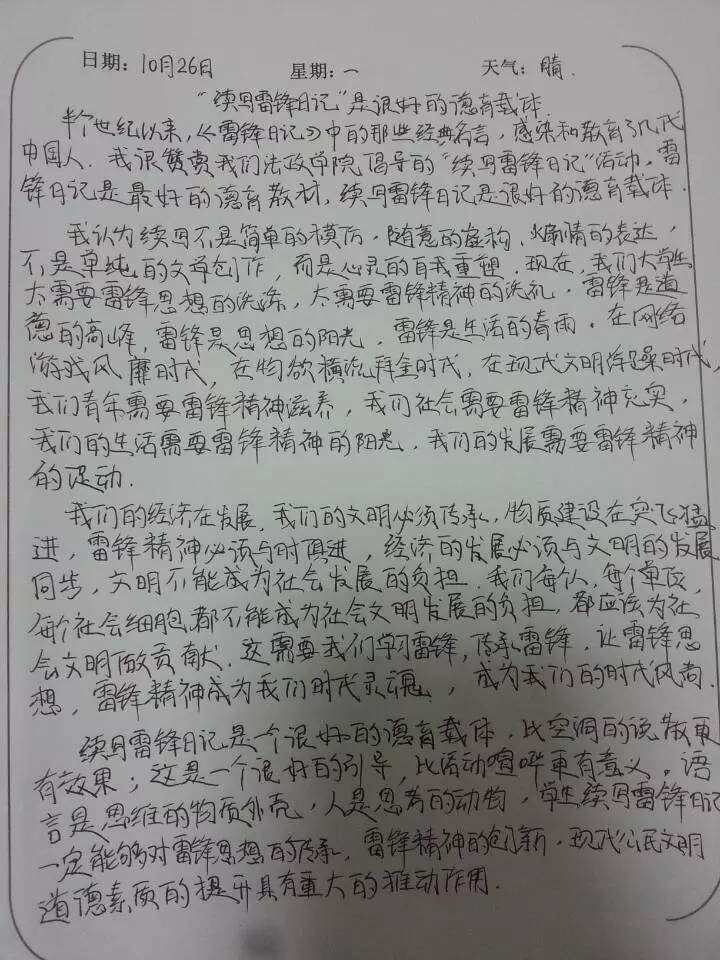 日期：10月26日 星期：一 天气：晴.
“续写雷锋日记”是很好的德育载体.
半个世纪以来,《雷锋日记》中的那些经典名言，感染和教育了几代
中国人．我很赞赏我们法政学院倡导的“续写雷锋日记”活动．雷
锋日记是最好的德育教材，续写雷锋日记是很好的德育载体．
我认为续写不是简单的模仿．随意的虚构、煽情的表达，
不是单纯的文学创作，而是心灵的自我重塑．现在，我们大学生
太需要雷锋思想的洗涤，太需要雷锋精神的洗礼．雷锋是道
德的高峰，雷锋是思想的阳光，雷锋是生活的春雨．在网络
游戏风靡时代，在物欲横流拜金时代，在现代文明浮躁时代，
我们青年需要雷锋精神滋养，我们社会需要雷锋精神充实，
我们的生活需要雷锋精神的阳光．我们的发展需要雷锋精神
的促动．
我们的经济在发展，我们的文明必须传承，物质建设在突飞猛
进，雷锋精神必须与时俱进，经济的发展必须与文明的发展
同步，文明不能成为社会发展的负担．我们每个人，每个单位，
每个社会细胞都不能成为社会文明发展的负担，都应该为社
会文明做贡献．这需要我们学习雷锋，传承雷锋，让雷锋思
想，雷锋精神成为我们时代灵魂，成为我们的时代风尚．
续写雷锋日记是一个很好的德育载体，比空洞的说教更
有效果；这是一个很好的引导，比活动喧哗更有意义．语
言是思维的物质外壳，人是思考的动物，学生续写雷锋日记
一定能够对雷锋思想的传承，雷锋精神的创新．现代公民文明
道德素质的提升具有重大的推动作用．